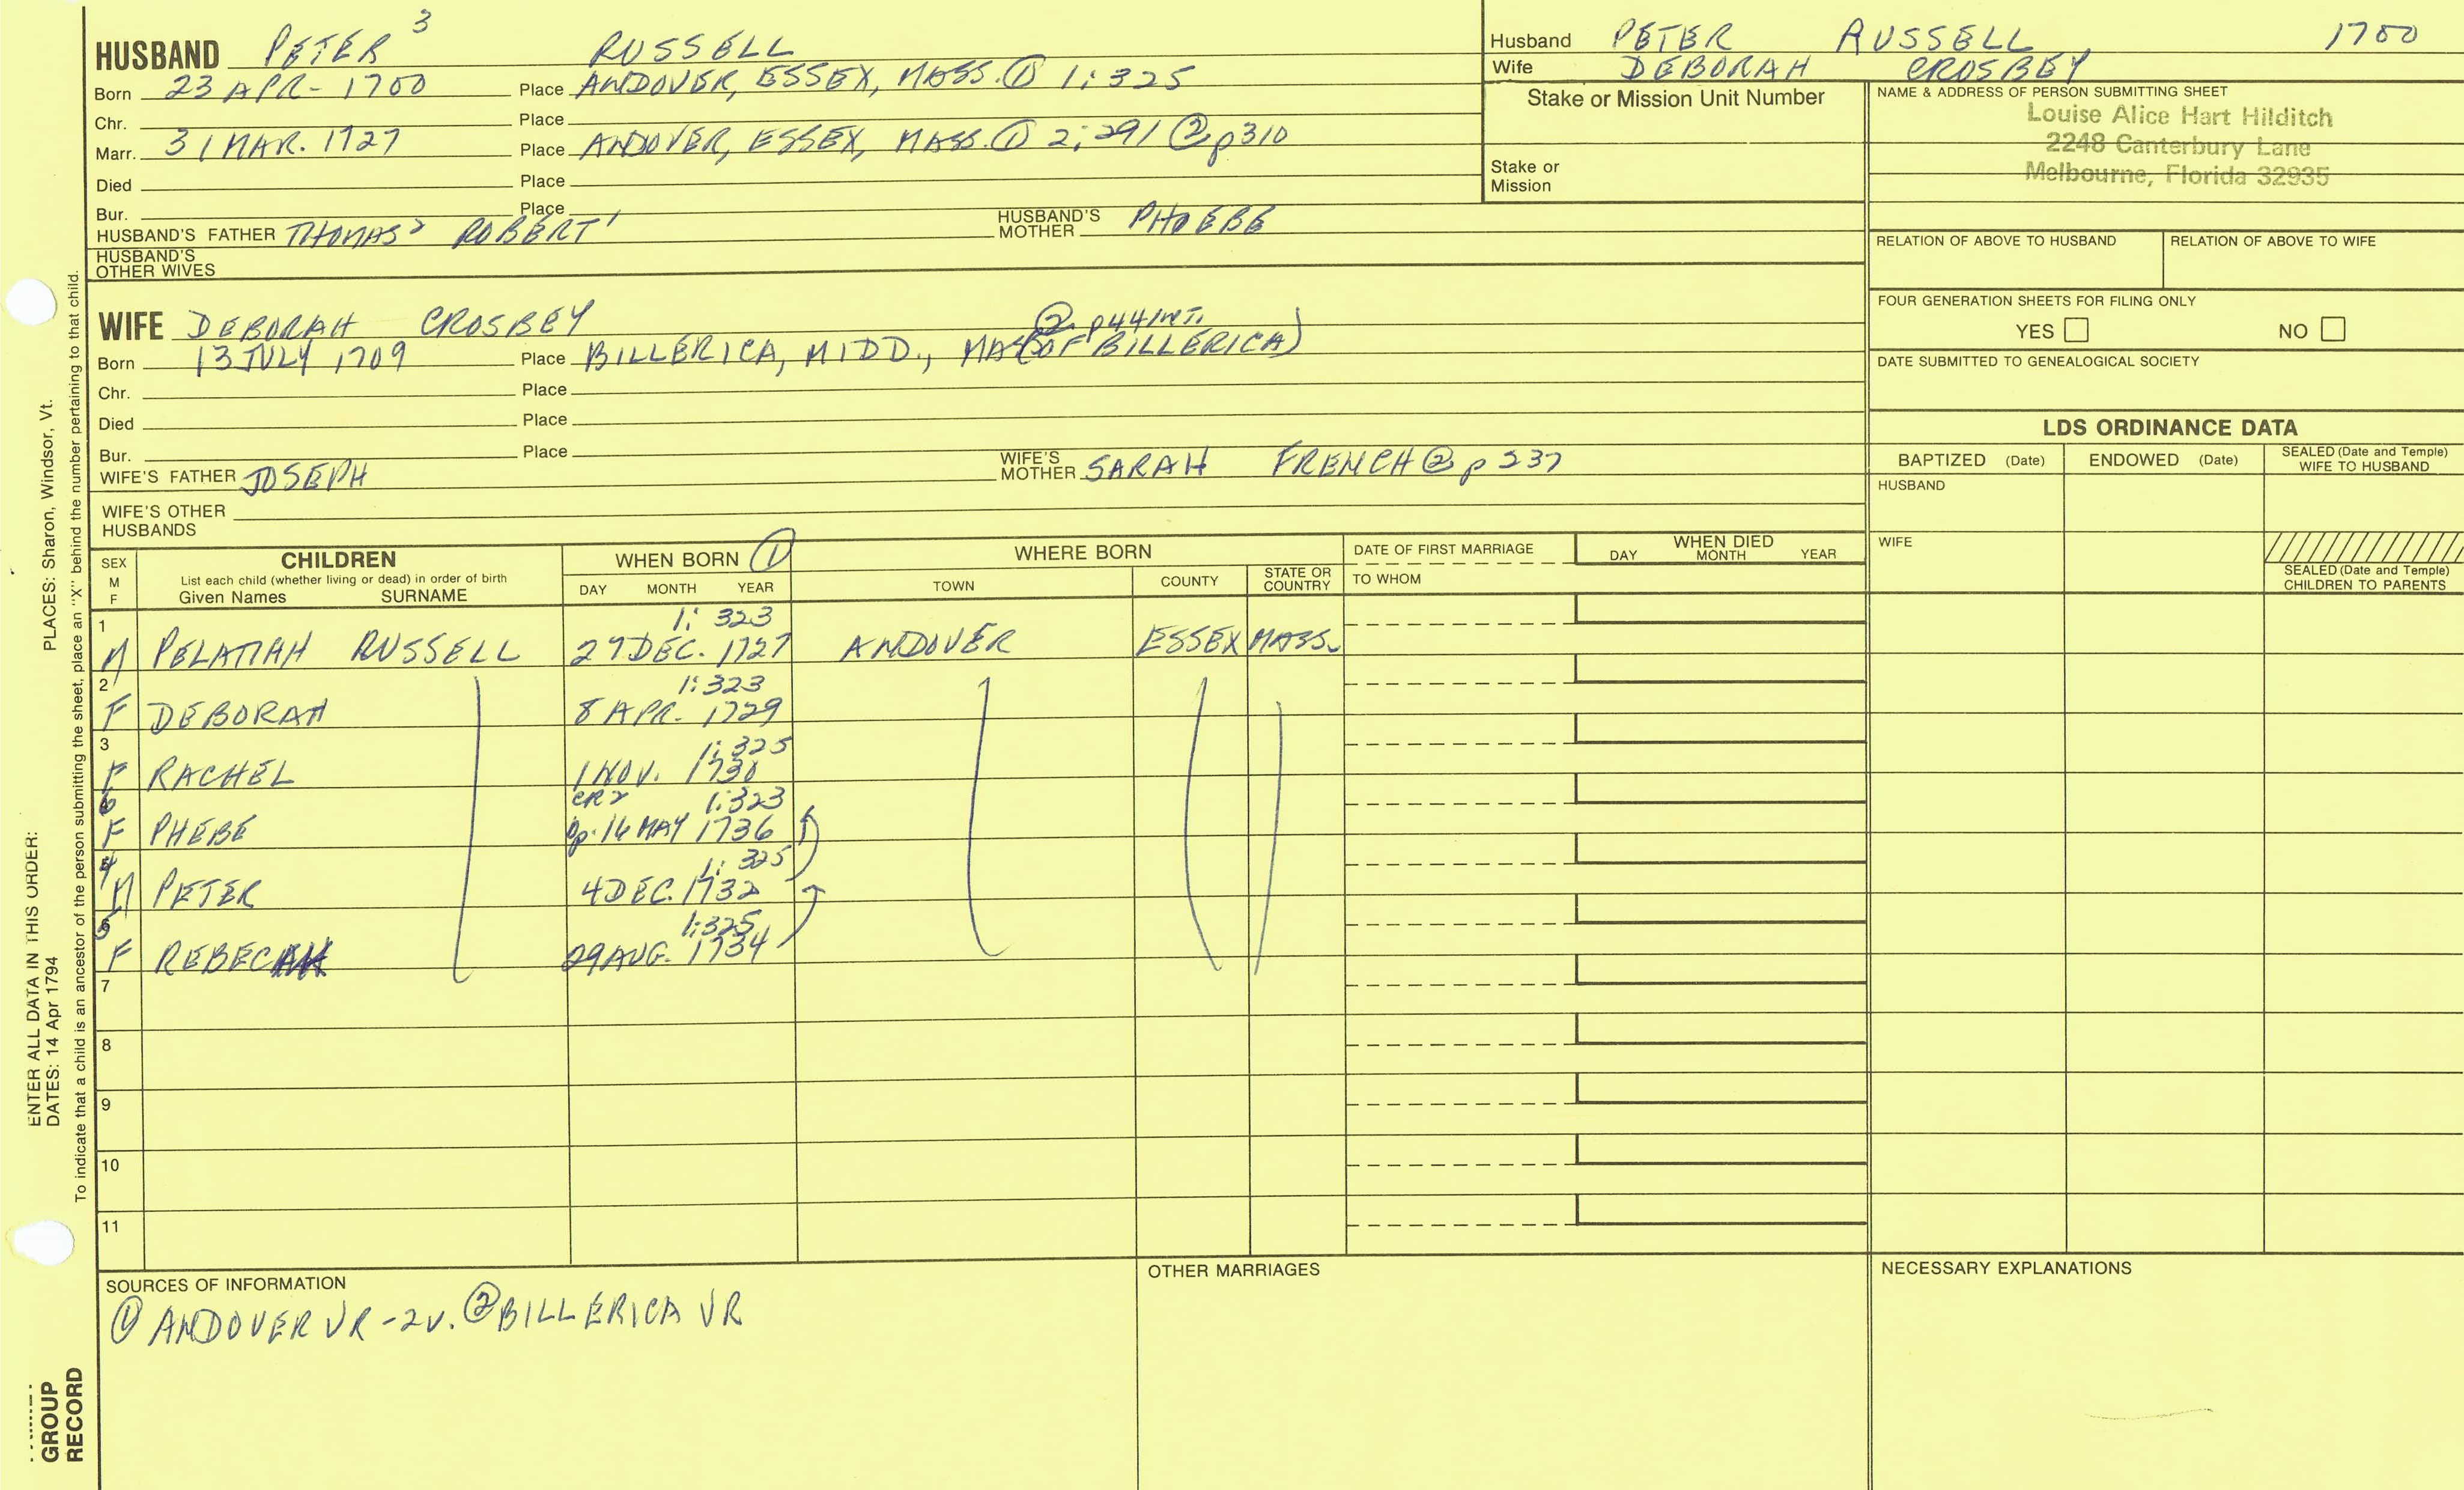 HUSBAND PETER 3 RUSSELL
Born 23 APR- 1700 Place ANDOVER, ESSEX, MASS. ① 1:325
Chr. Place
Marr. 31 MAR. 1727 Place ANDOVER, ESSEX, MASS. ① 2:291 ② p310
Died Place
Bur. Place
HUSBAND'S FATHER THOMAS 2 ROBERT 1 HUSBAND'S MOTHER PHOEBE
HUSBAND'S OTHER WIVES
Husband PETER RUSSELL 1700
Wife DEBORAH CROSBEY
Stake or Mission Unit Number
Stake or Mission
NAME & ADDRESS OF PERSON SUBMITTING SHEET
Louise Alice Hart Hilditch
2248 Canterbury Lane
Melbourne, Florida 32935
RELATION OF ABOVE TO HUSBAND RELATION OF ABOVE TO WIFE
FOUR GENERATION SHEETS FOR FILING ONLY
YES NO
DATE SUBMITTED TO GENEALOGICAL SOCIETY
WIFE DEBORAH CROSBEY
② p44 INT.
Born 13 JULY 1709 Place BILLERICA, MIDD., MA (OF BILLERICA)
Chr. Place
Died Place
Bur. Place
WIFE'S FATHER JOSEPH WIFE'S MOTHER SARAH FRENCH ② p 237
WIFE'S OTHER HUSBANDS
LDS ORDINANCE DATA
BAPTIZED (Date) ENDOWED (Date) SEALED (Date and Temple) WIFE TO HUSBAND
HUSBAND
WIFE
SEALED (Date and Temple) CHILDREN TO PARENTS
SEX M F
CHILDREN
List each child (whether living or dead) in order of birth
Given Names SURNAME
WHEN BORN ①
DAY MONTH YEAR
WHERE BORN
TOWN COUNTY STATE OR COUNTRY
DATE OF FIRST MARRIAGE
TO WHOM
WHEN DIED
DAY MONTH YEAR
1 1: 323
M PELATIAH RUSSELL 27 DEC. 1727 ANDOVER ESSEX MASS.
2 1:323
F DEBORAH 8 APR. 1729
3 1:325
F RACHEL 1 NOV. 1730
6 CR2 1:323
F PHEBE bp. 16 MAY 1736
4 1: 325
M PETER 4 DEC. 1732
5 1:325
F REBECAH 29 AUG. 1734
7
8
9
10
11
SOURCES OF INFORMATION
① ANDOVER VR - 2v. ② BILLERICA VR
OTHER MARRIAGES
NECESSARY EXPLANATIONS
ENTER ALL DATA IN THIS ORDER:
DATES: 14 Apr 1794
PLACES: Sharon, Windsor, Vt.
To indicate that a child is an ancestor of the person submitting the sheet, place an "X" behind the number pertaining to that child.
GROUP
RECORD